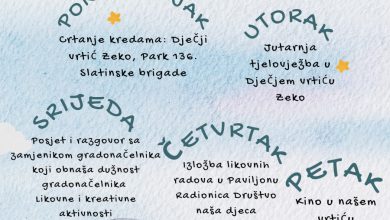 Crtanje kredama: Dječji
vrtić Zeko, Park 136.
Slatinske brigade
UTORAK
Jutarnja
tjelovježba u
Dječjem vrtiću
Zeko
SRIJEDA
Posjet i razgovor sa
zamjenikom gradonačelnika
koji obnaša dužnost
gradonačelnika
Likovne i kreativne
aktivnosti
ČETVRTAK
Izložba likovnih
radova u Paviljonu
Radionica Društvo
naša djeca
PETAK
Kino u našem
vrtiću